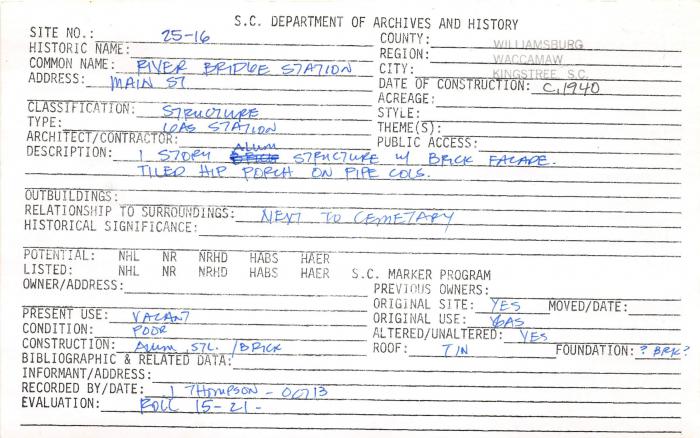 S.C. DEPARTMENT OF ARCHIVES AND HISTORY
SITE NO.: 25-16
HISTORIC NAME:
COMMON NAME: RIVER BRIDGE STATION
ADDRESS: MAIN ST.
COUNTY: WILLIAMSBURG
REGION: WACCAMAW
CITY: KINGSTREE, S.C.
DATE OF CONSTRUCTION: C.1940
ACREAGE:
CLASSIFICATION: STRUCTURE
STYLE:
TYPE: GAS STATION
THEME(S):
ARCHITECT/CONTRACTOR:
PUBLIC ACCESS:
DESCRIPTION: 1 STORY Alum STRUCTURE w/ BRICK FACADE.
TILED HIP PORCH ON PIPE COLS.
OUTBUILDINGS:
RELATIONSHIP TO SURROUNDINGS: NEXT TO CEMETARY
HISTORICAL SIGNIFICANCE:
POTENTIAL: NHL NR NRHD HABS HAER
LISTED: NHL NR NRHD HABS HAER S.C. MARKER PROGRAM
OWNER/ADDRESS:
PREVIOUS OWNERS:
ORIGINAL SITE: YES MOVED/DATE:
PRESENT USE: VACANT
ORIGINAL USE: GAS
CONDITION: POOR
ALTERED/UNALTERED: YES
CONSTRUCTION: Alum, STL. /BRICK
ROOF: TIN FOUNDATION: ? BRK?
BIBLIOGRAPHIC & RELATED DATA:
INFORMANT/ADDRESS:
RECORDED BY/DATE: J THOMPSON -
EVALUATION: ROLL 15-21-